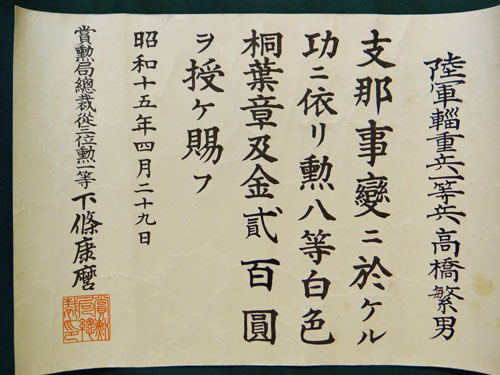 陸軍輜重兵一等兵高橋繁男
支那事變ニ於ケル
功ニ依リ勲八等白色
桐葉章及金貳百圓
ヲ授ケ賜フ
昭和十五年四月二十九日
賞勲局總裁從三位勲一等下條康麿
賞勲局總裁印